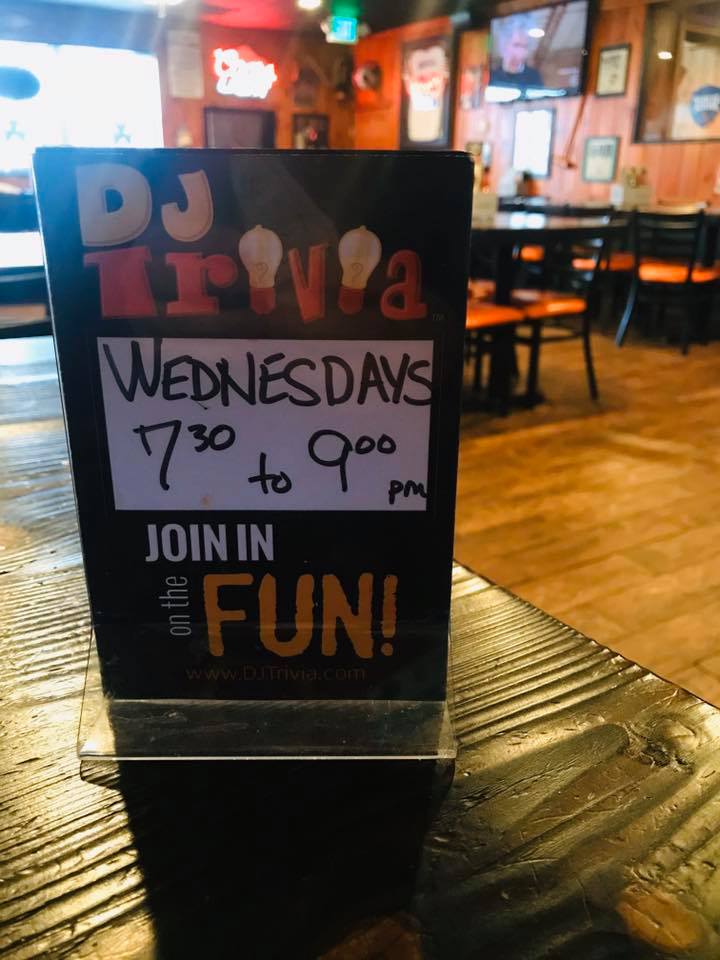 DJ
Trivia
WEDNESDAYS
7 30 to 9 00 pm
JOIN IN
on the FUN!
www.DJTrivia.com